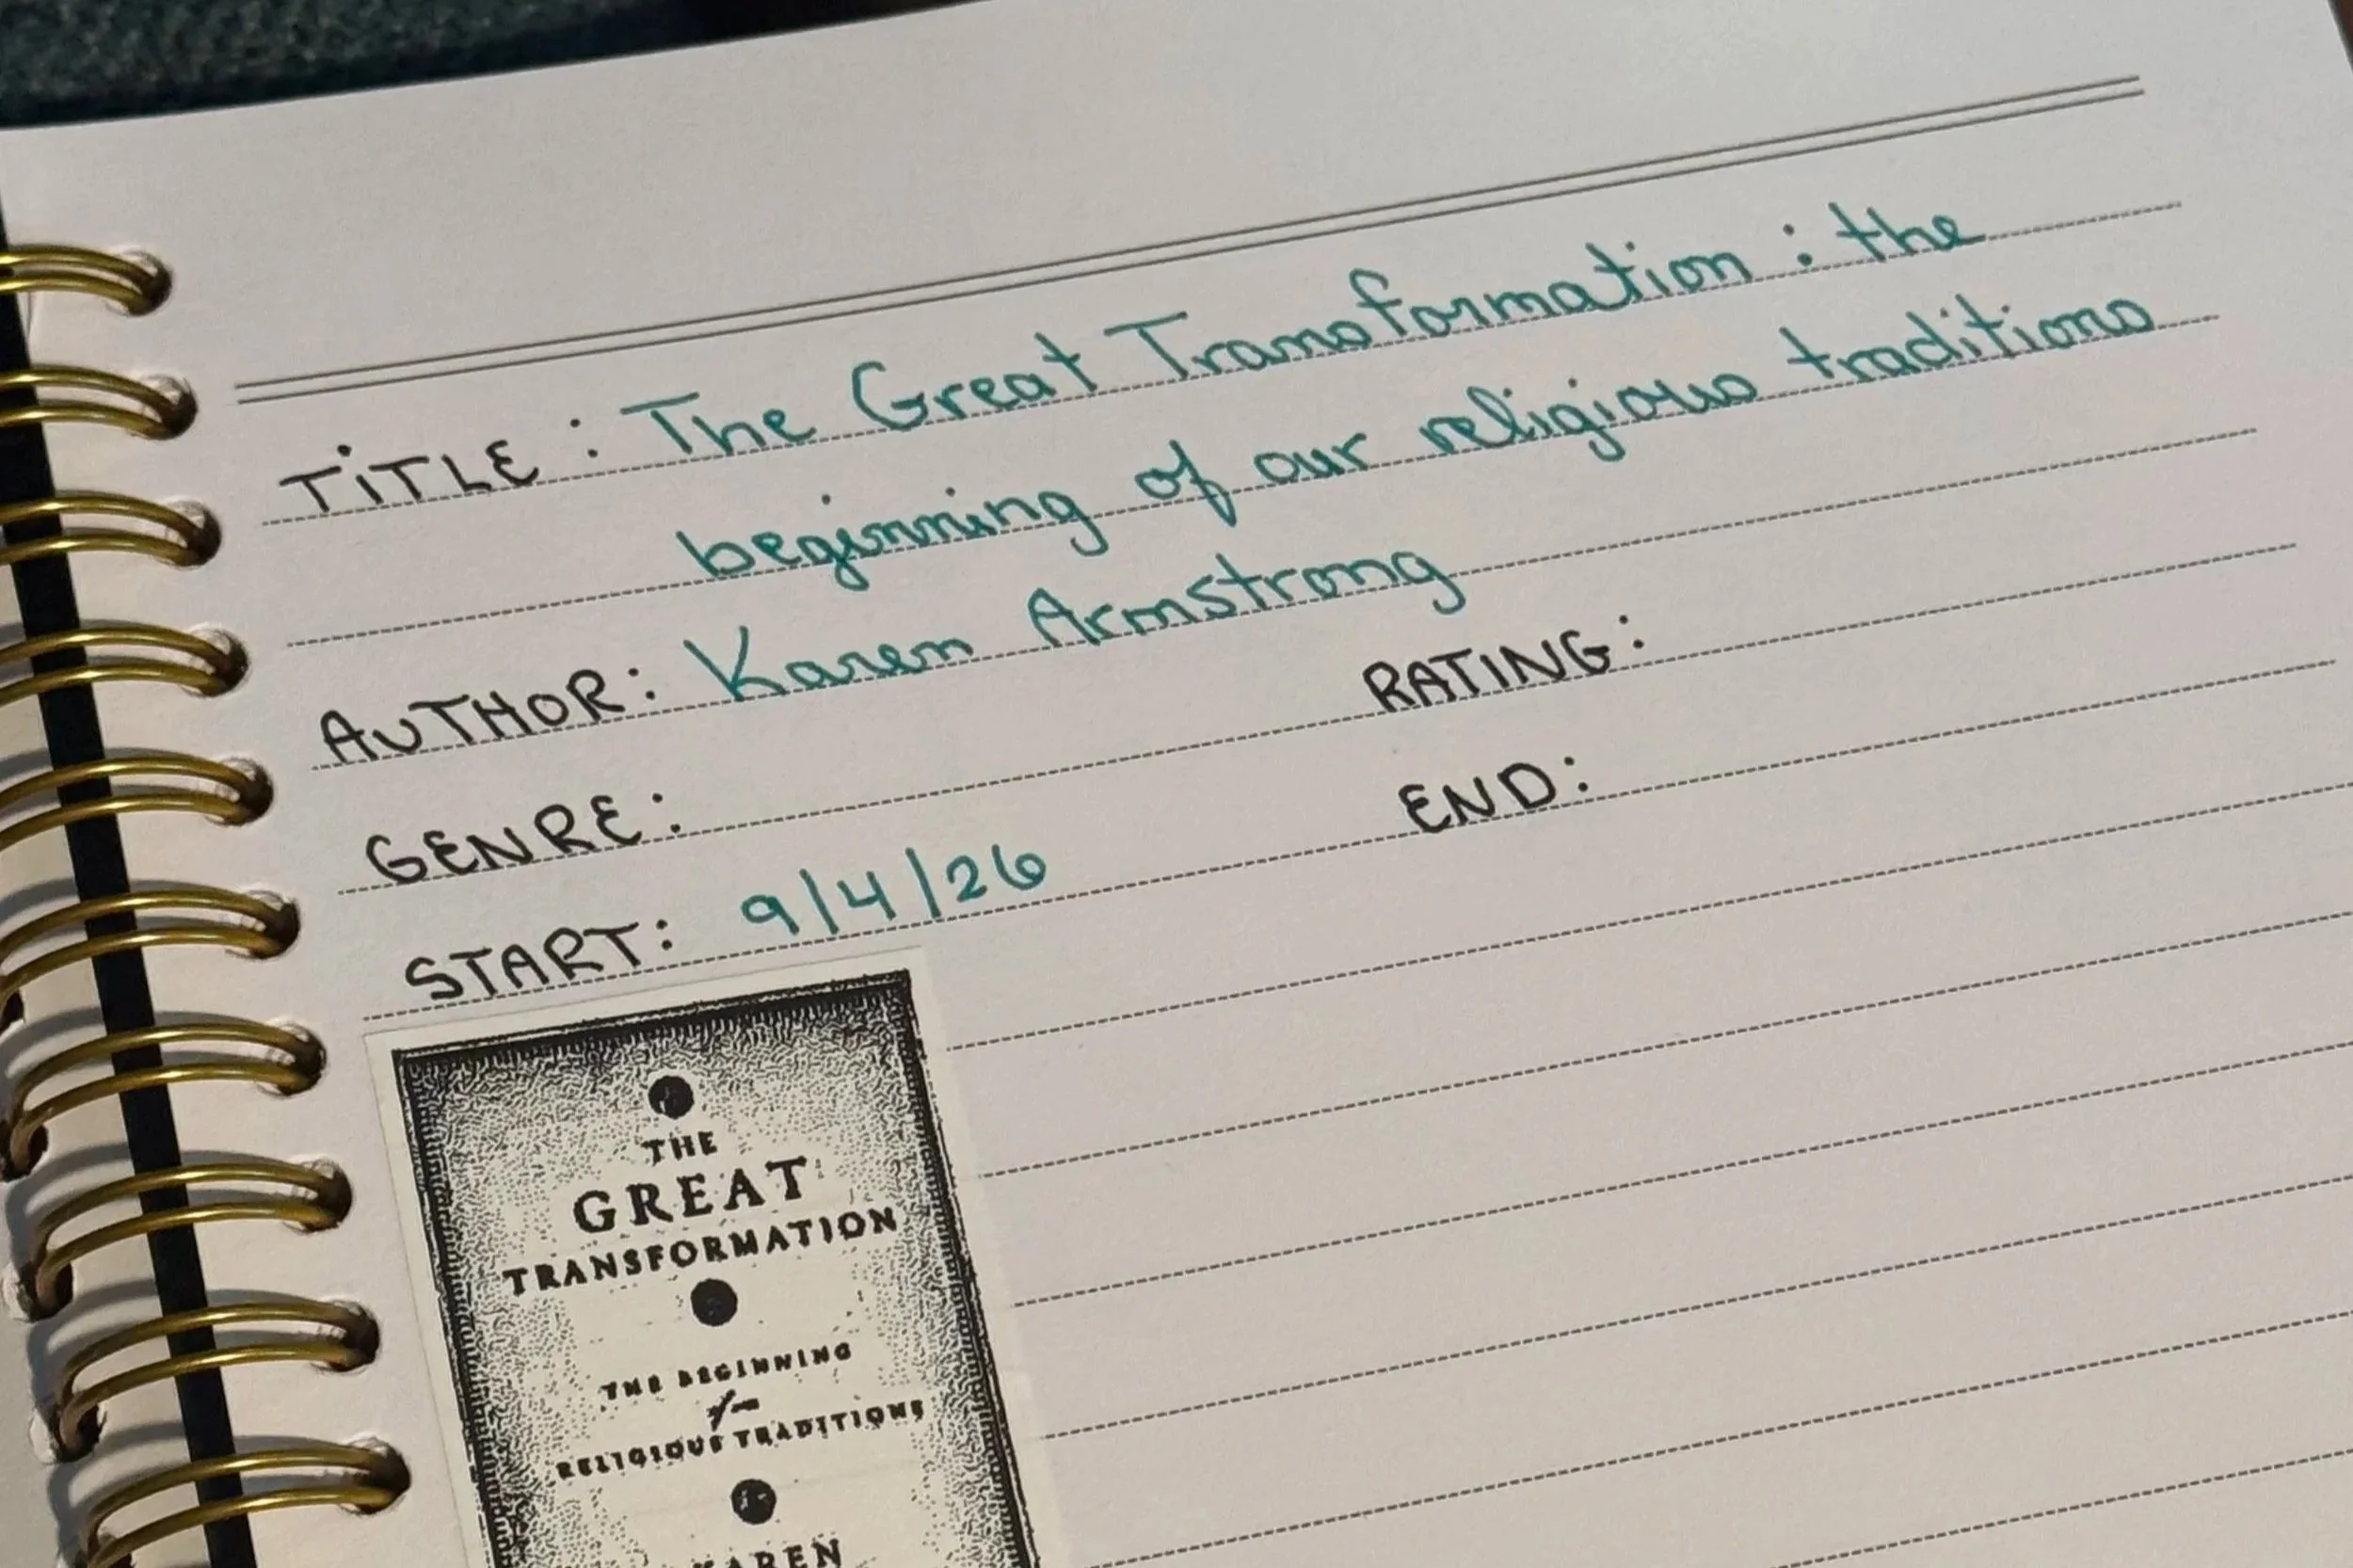 TITLE: The Great Transformation: the
beginning of our religious traditions
AUTHOR: Karen Armstrong
GENRE: RATING:
START: 9/4/26 END:
THE
GREAT
TRANSFORMATION
THE BEGINNING
of our
RELIGIOUS TRADITIONS
KAREN